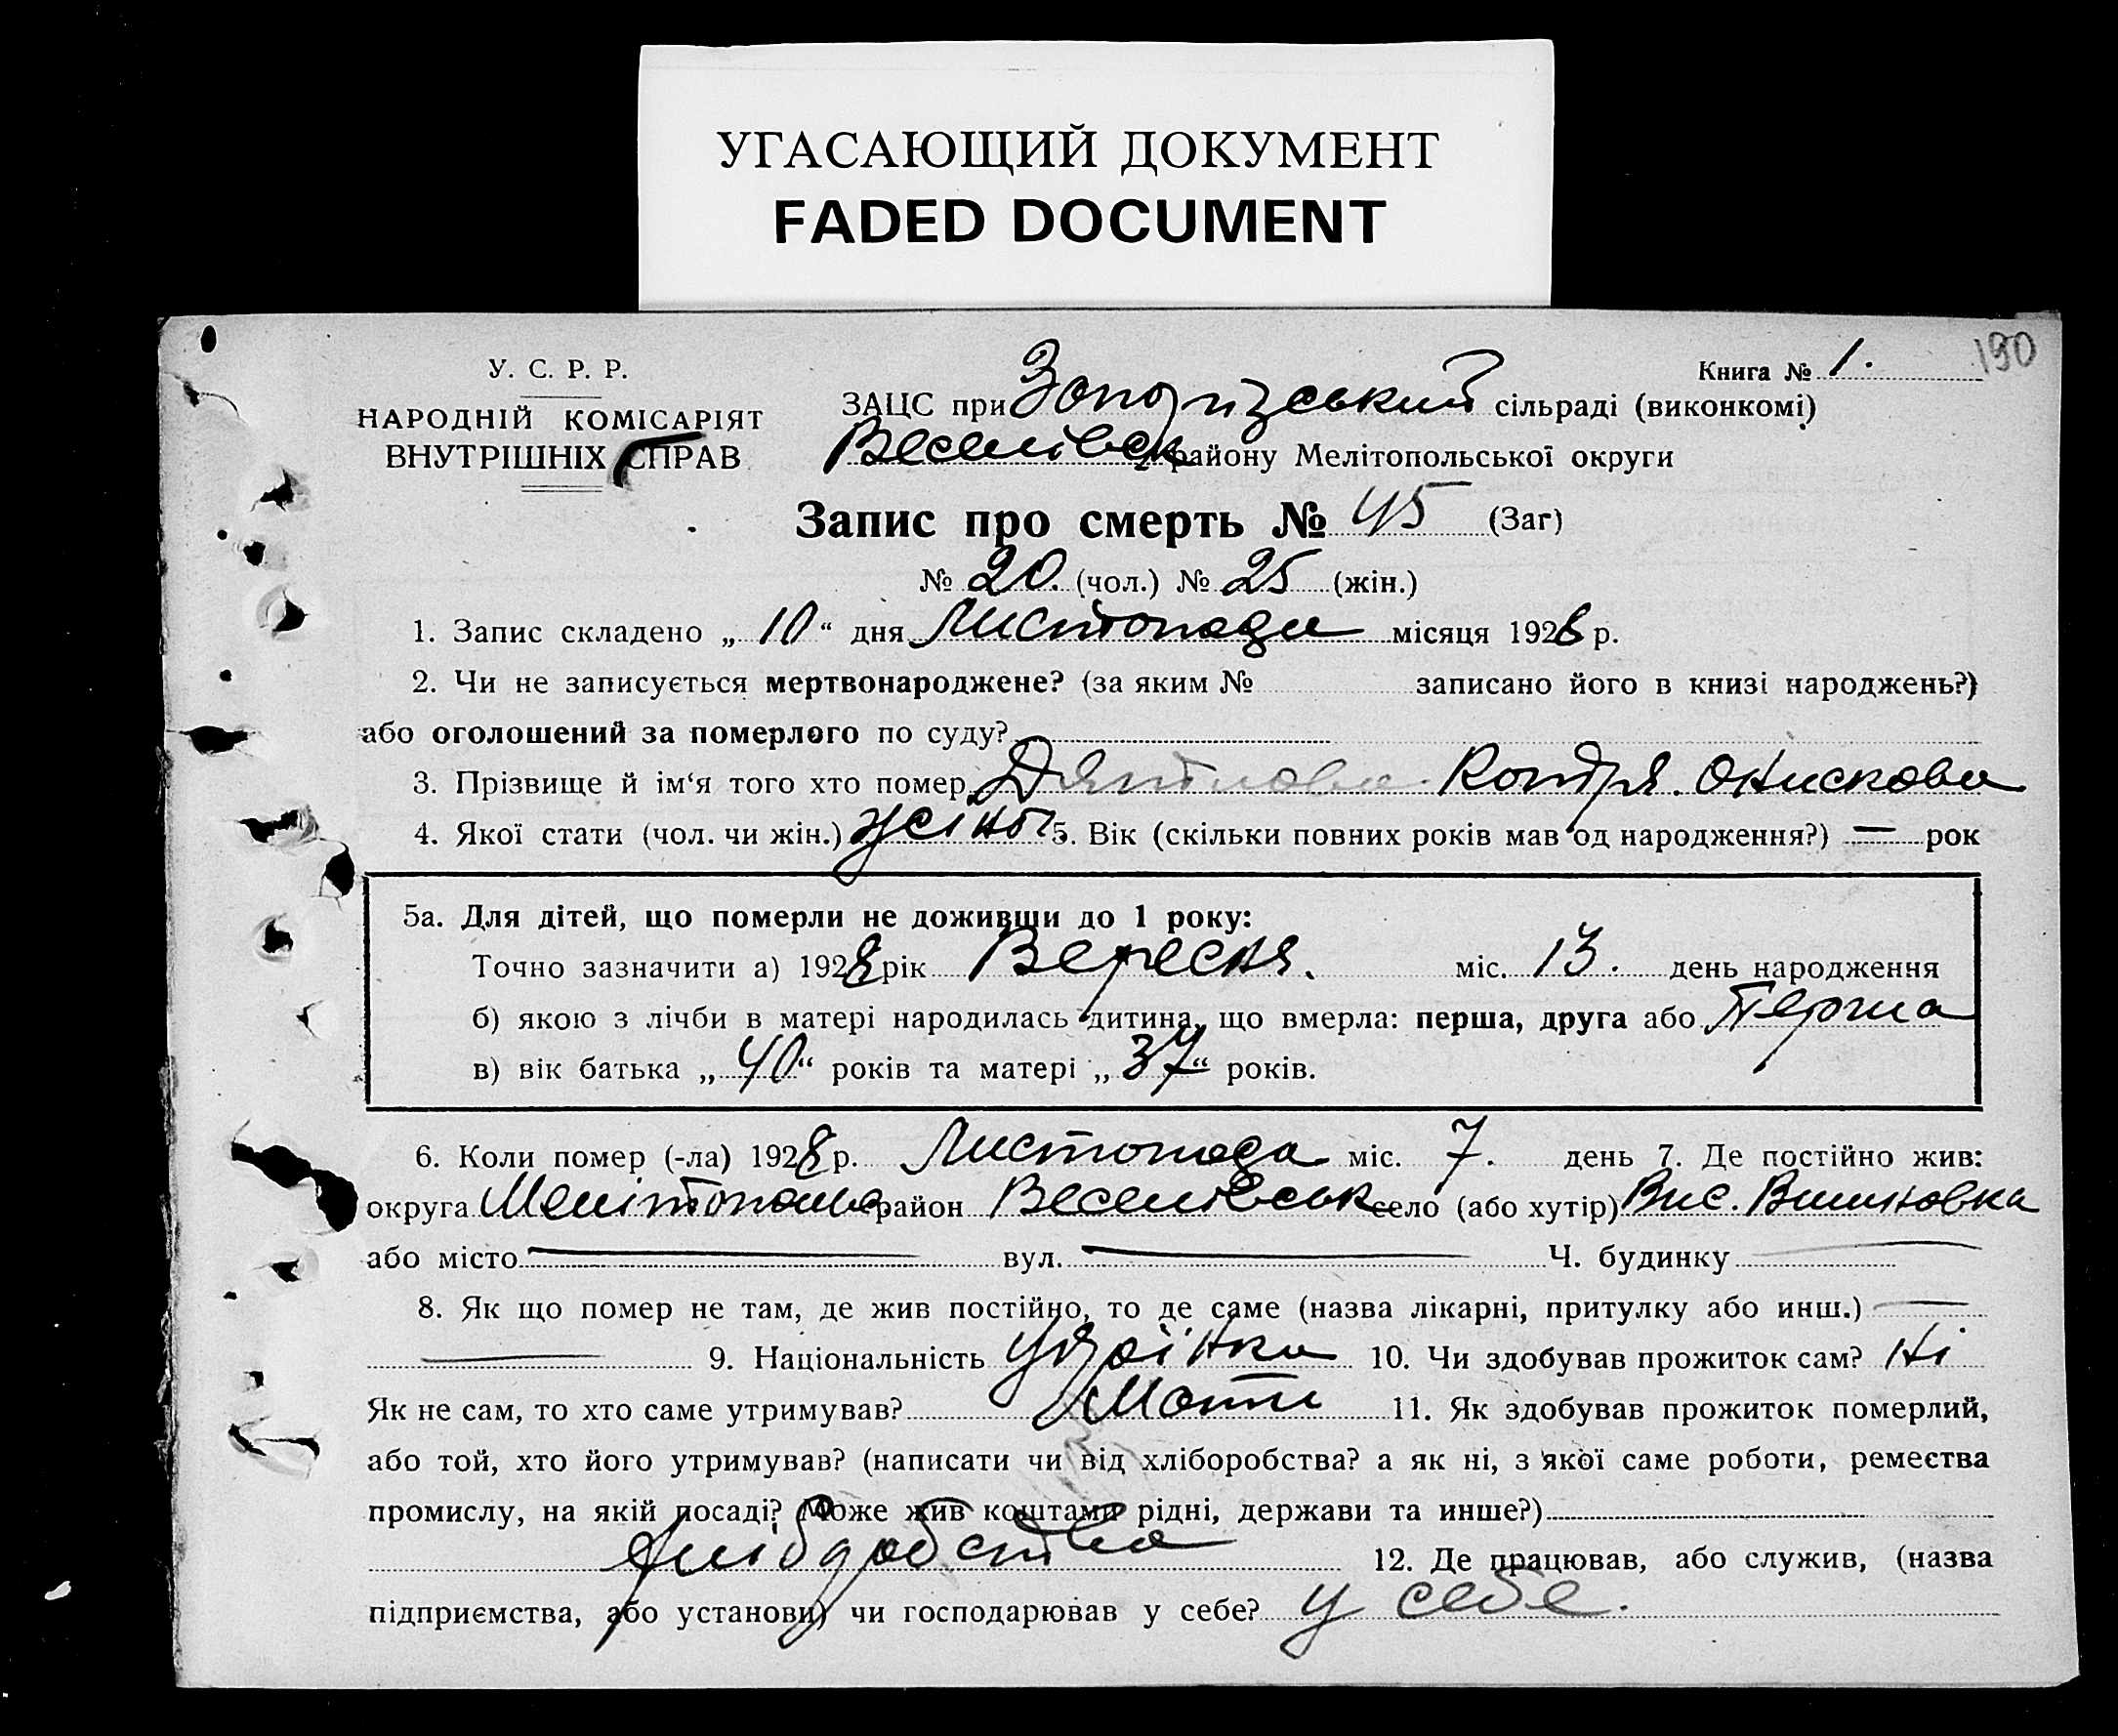 УГАСАЮЩИЙ ДОКУМЕНТ
FADED DOCUMENT
190
У. С. Р. Р.
НАРОДНІЙ КОМІСАРІЯТ
ВНУТРІШНІХ СПРАВ
Книга № 1.
ЗАЦС при сільраді (виконкомі)
Веселівськ району Мелітопольської округи
Запис про смерть № 45 (Заг)
№ 20. (чол.) № 25 (жін.)
1. Запис складено „ 10 “ дня Листопада місяця 1928 р.
2. Чи не записується мертвонароджене? (за яким № записано його в книзі народжень?)
або оголошений за померлого по суду?
3. Прізвище й ім‘я того хто помер
4. Якої стати (чол. чи жін.) 5. Вік (скільки повних років мав од народження?) — рок
5а. Для дітей, що померли не доживши до 1 року:
Точно зазначити а) 1928 рік Вересня. міс. 13. день народження
б) якою з лічби в матері народилась дитина, що вмерла: перша, друга або Перша
в) вік батька „ 40 “ років та матері „ 37 “ років.
6. Коли помер (-ла) 1928 р. Листопада міс. 7. день 7. Де постійно жив:
округа район Веселівськ село (або хутір)
або місто — вул. — Ч. будинку —
8. Як що помер не там, де жив постійно, то де саме (назва лікарні, притулку або инш.) —
— 9. Національність 10. Чи здобував прожиток сам? Ні
Як не сам, то хто саме утримував? Мати 11. Як здобував прожиток померлий,
або той, хто його утримував? (написати чи від хліборобства? а як ні, з якої саме роботи, ремества
промислу, на якій посаді? Може жив коштами рідні, держави та инше?)
12. Де працював, або служив, (назва
підприємства, або установи) чи господарював у себе? у себе.